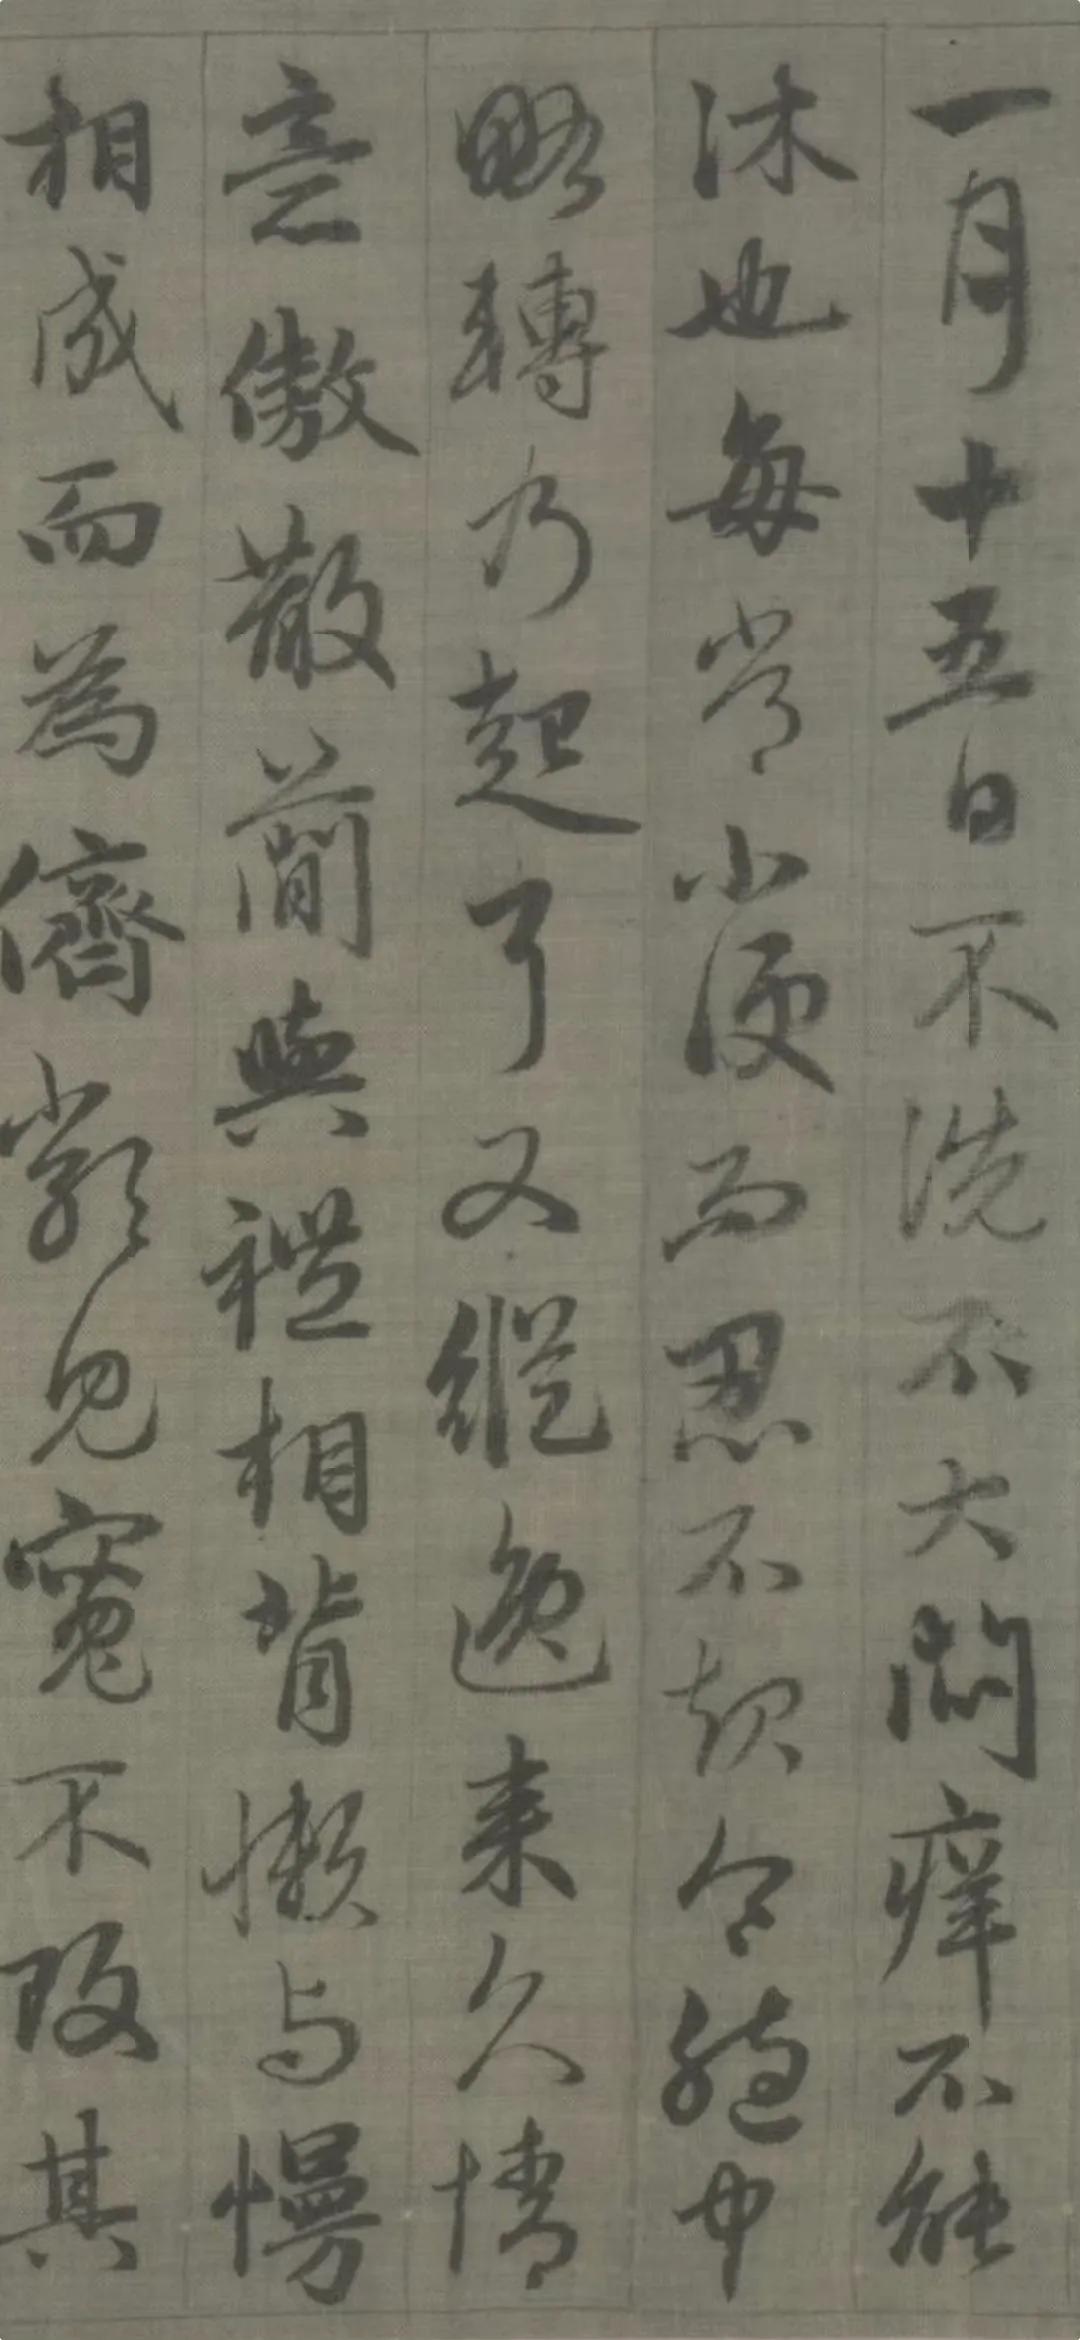 一月十五日不洗不大悶癢不能
沐也每常小便而忍不起令胞中
略轉乃起耳又縱逸来久情
意傲散簡與禮相背懶与慢
相成而為儕類見寬不攻其